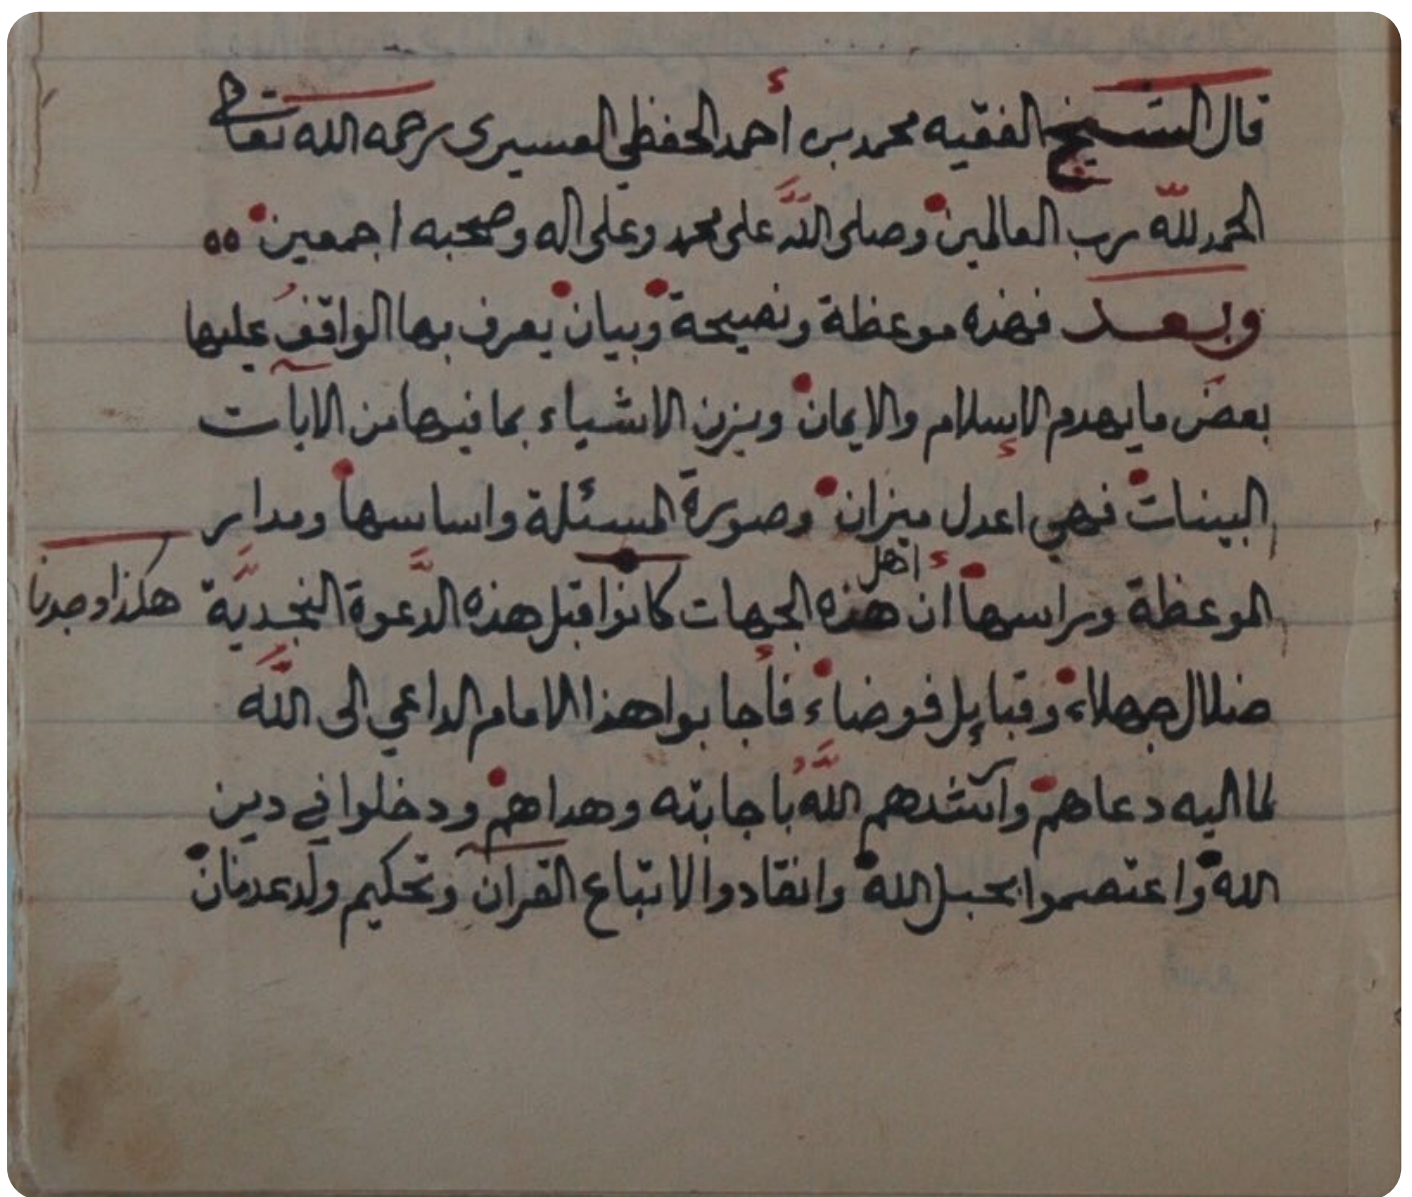 قال الشيخ الفقيه محمد بن أحمد الحفظي العسيري رحمه الله تعالى
الحمد لله رب العالمين وصلى الله على محمد وعلى اله وصحبه اجمعين
وبعد فهذه موعظة ونصيحة وبيان يعرف بها الواقف عليها
بعض ما يهدم الإسلام والايمان ويزن الاشياء بما فيها من الآيات
البينات فهي اعدل ميزان وصورة المسئلة واساسها ومدار
الموعظة وراسها أن اهل هذه الجهات كانوا قبل هذه الدَّعوة النجديَّة
هكذا وجدنا
ضلال جهلاء وقبايل فوضاء فأجابوا هذا الامام الداعي الى اللَّه
لما اليه دعاهم وآنشدهم اللَّهُ باجابته وهداهم ودخلوا في دين
الله واعتصموا بحبل الله وانقادوا لاتباع القرآن وتحكيم ولد عدنان